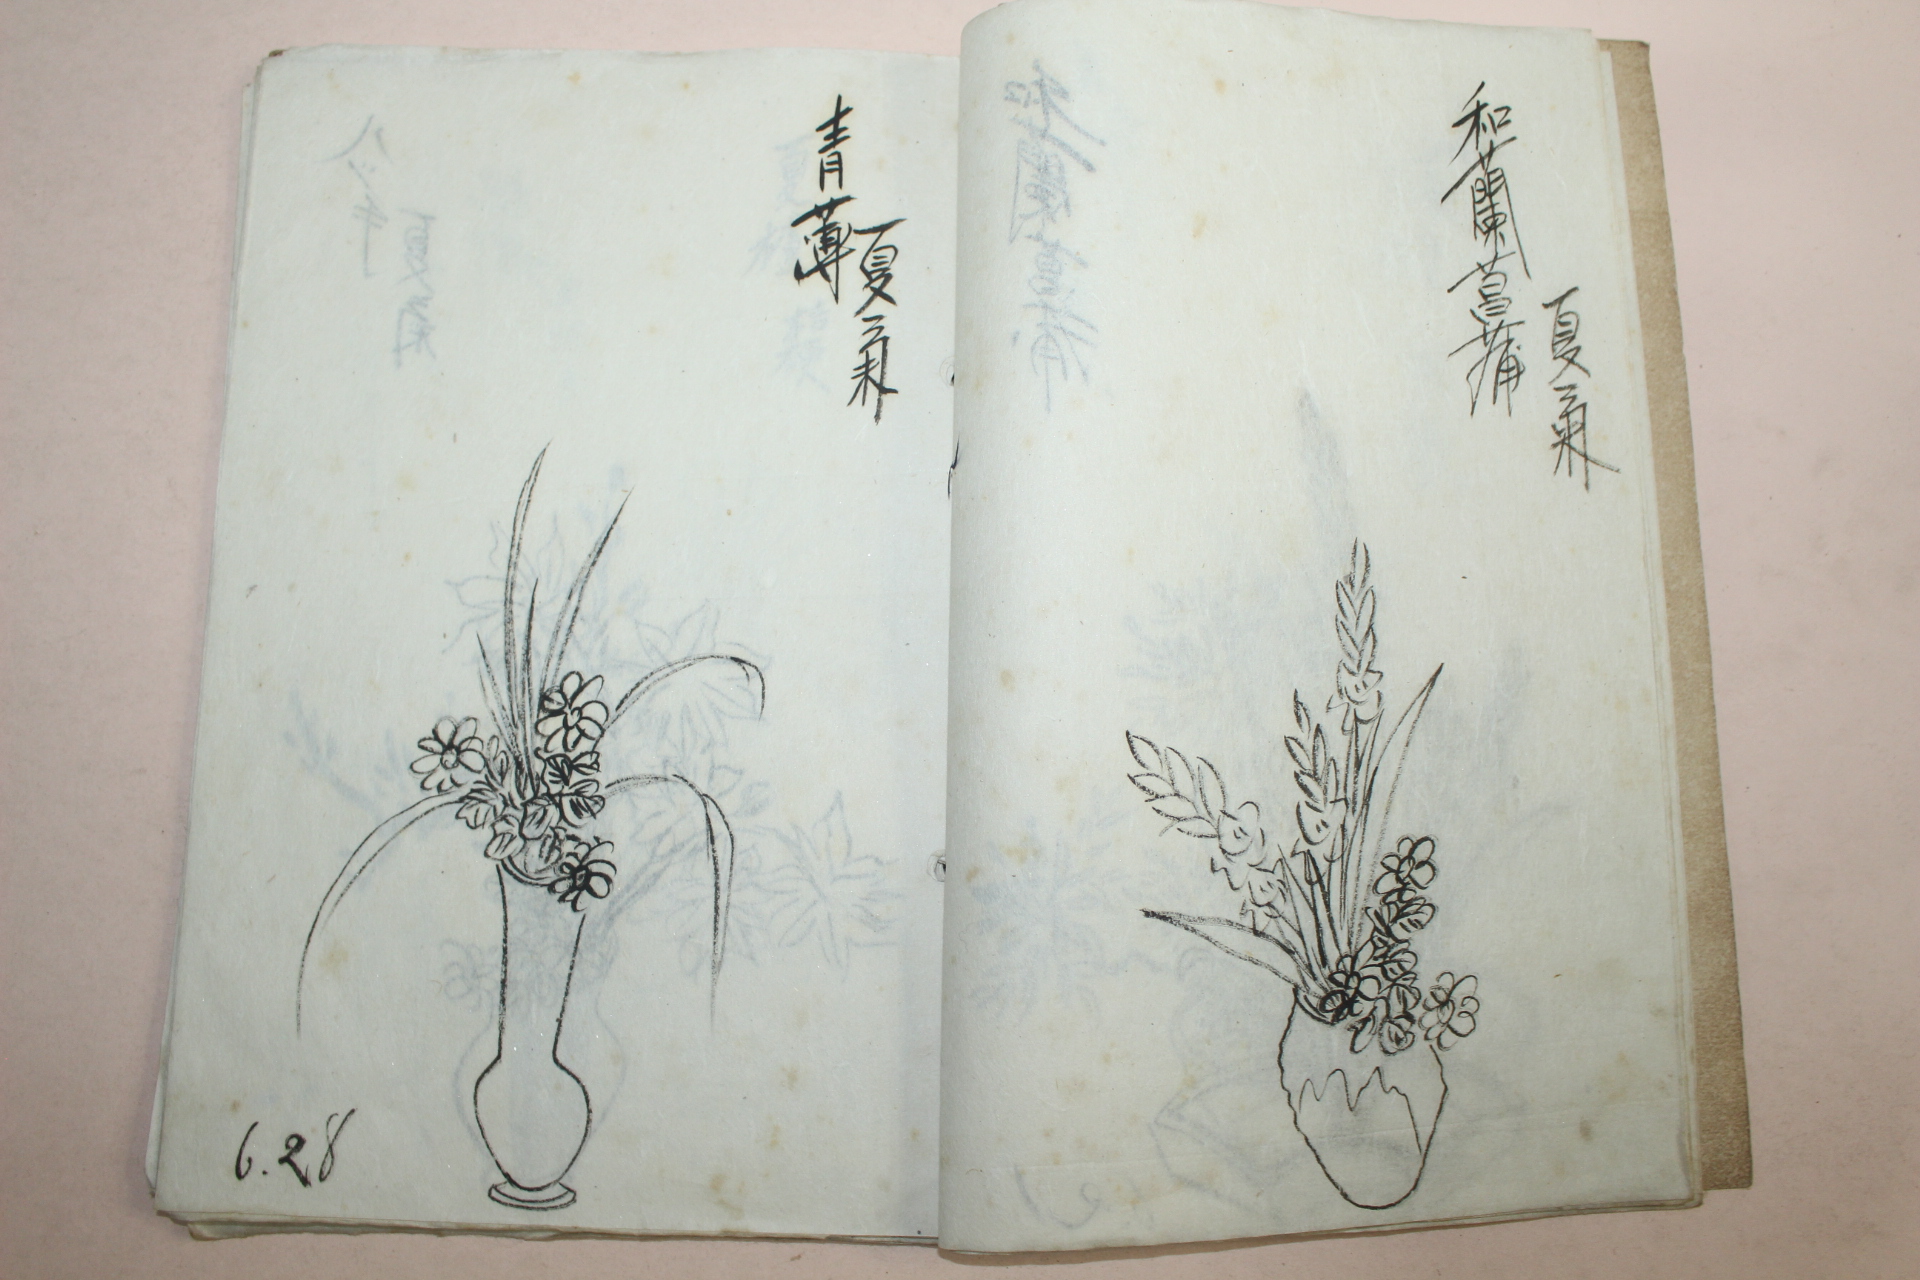 和蘭菖蒲
夏菊
青薄
夏菊
6.28